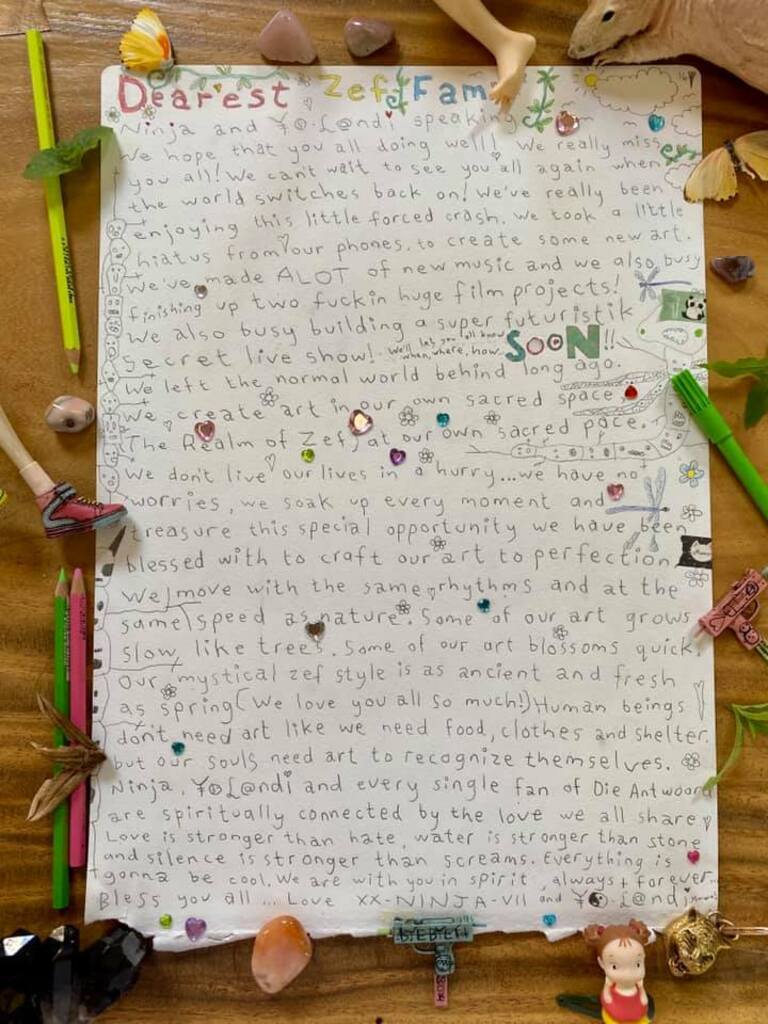 Dearest Zef Fam
Ninja and ¥☯-L@ndi speaking
We hope that you all doing well! We really miss
you all! We can't wait to see you all again when
the world switches back on! We've really been
enjoying this little forced crash. We took a little
hiatus from our phones, to create some new art.
We've made ALOT of new music and we also busy
finishing up two fuckin huge film projects!
We also busy building a super futuristik
secret live show! We'll let you all know when, where, how SOON!!
We left the normal world behind long ago.
We create art in our own sacred space.
The Realm of Zef, at our own sacred pace.
We don't live our lives in a hurry...we have no
worries, we soak up every moment and
treasure this special opportunity we have been
blessed with to craft our art to perfection.
We move with the same rhythms and at the
same speed as nature. Some of our art grows
slow, like trees. Some of our art blossoms quick.
Our mystical zef style is as ancient and fresh
as spring (We love you all so much!) Human beings
don't need art like we need food, clothes and shelter.
but our souls need art to recognize themselves.
Ninja, ¥☯L@ndi and every single fan of Die Antwoord
are spiritually connected by the love we all share
Love is stronger than hate, water is stronger than stone
and silence is stronger than screams. Everything is
gonna be cool. We are with you in spirit, always + forever...
Bless you all ... Love XX-NINJA-VII and ¥☯-L@ndi